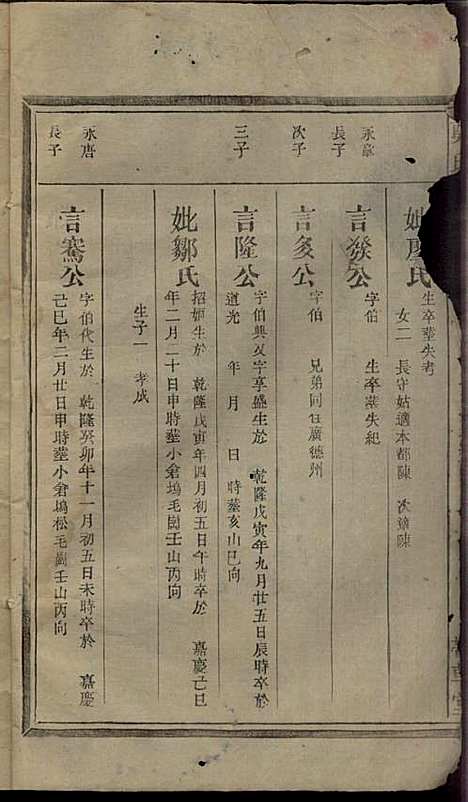 妣廖氏
生卒塟失考
女二 長守姑適本都陳 次適陳
永章
長子
言發公
字伯 生卒塟失紀
次子
言多公
字伯 兄弟同在廣德州
三子
言隆公
字伯興又字享盛生於 乾隆戊寅年九月廿五日辰時卒於
道光 年 月 日 時塟亥山巳向
妣鄒氏
招姬生於 乾隆戊寅年四月初五日午時卒於 嘉慶己巳
年二月二十日申時塟小倉塢毛園壬山丙向
生子一 孝成
永唐
長子
言鶱公
字伯代生於 乾隆癸卯年十一月初五日未時卒於 嘉慶
己巳年二月廿日申時塟小倉塢松毛園壬山丙向